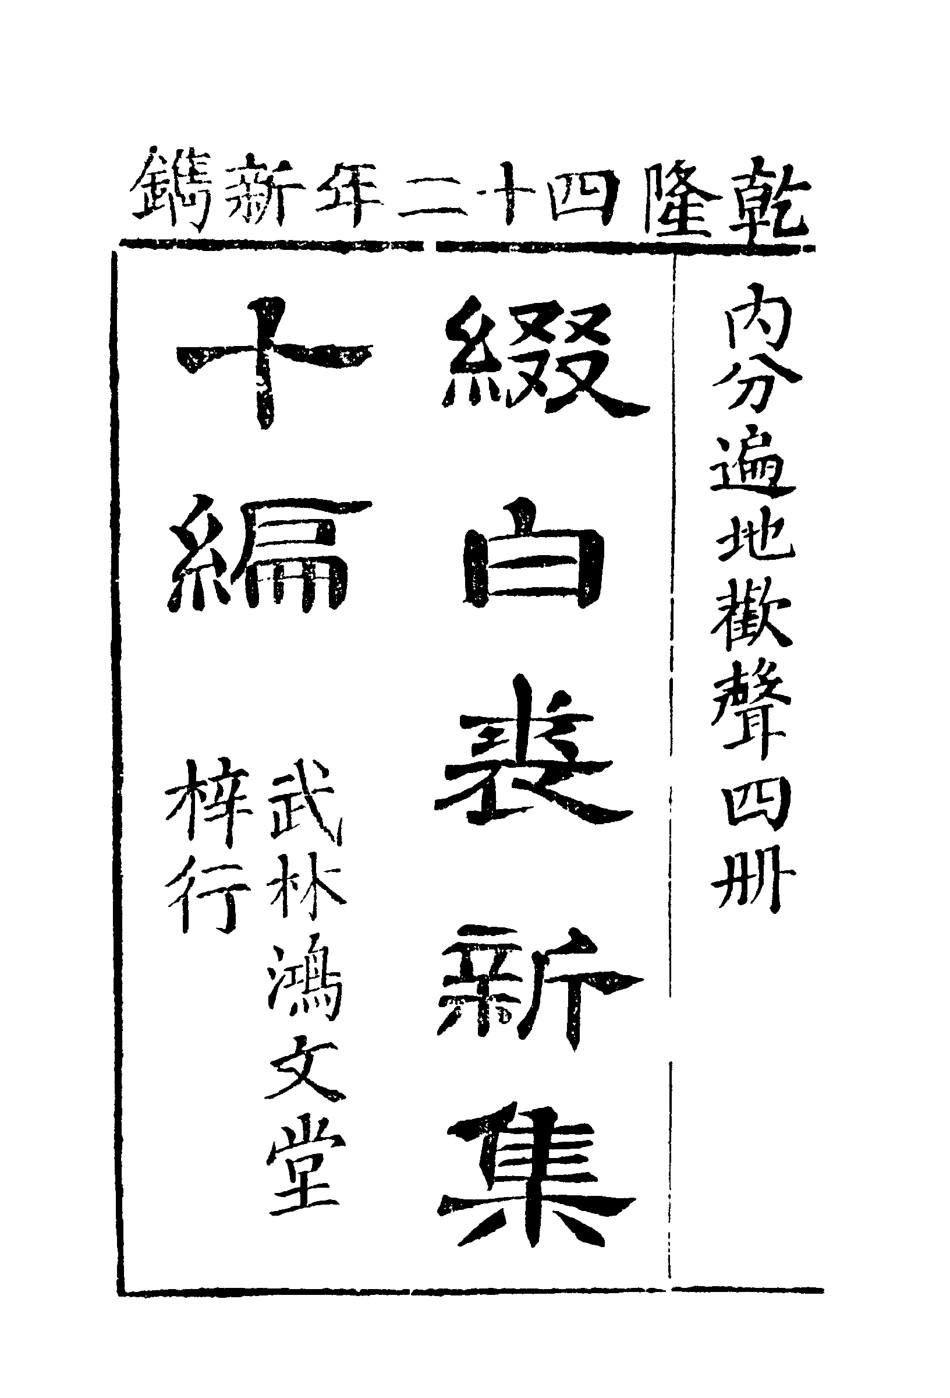 乾隆四十二年新鐫
内分遍地歡聲四册
綴白裘新集
十編
武林鴻文堂
梓行